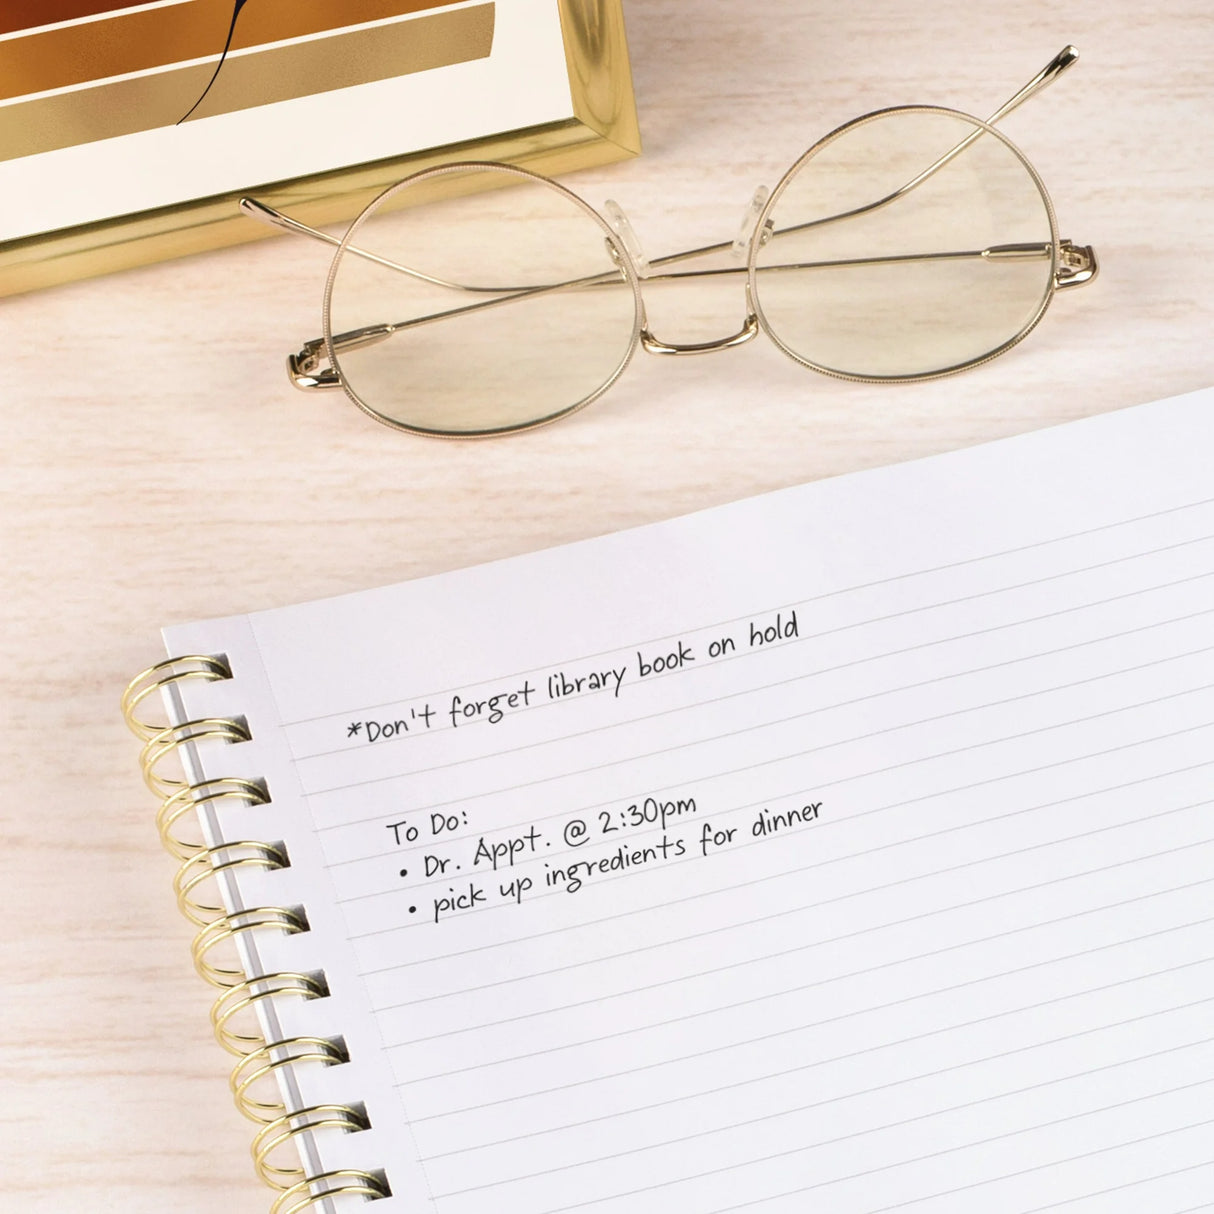 *Don't forget library book on hold
To Do:
• Dr. Appt. @ 2:30pm
• pick up ingredients for dinner